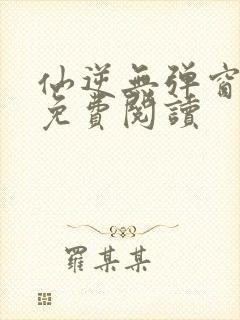 仙逆無弹窗
免費閱讀
羅某某